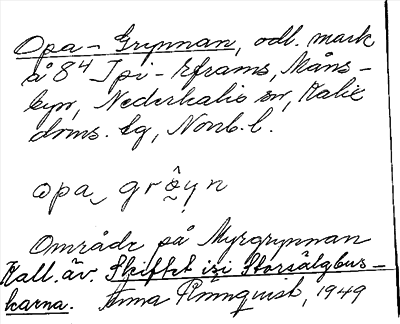 Opa-Grynnan, odl. mark
å 8⁴ Ipi-Eframs, Måns-
byn, Nederkalix sn, Kalix
doms. tg, Norrb. l.
opa grôyn
Område på Myrgrynnan
Kall. äv. Skiftet ini Storsälgbus-
karna. Anna Rönnquist, 1949